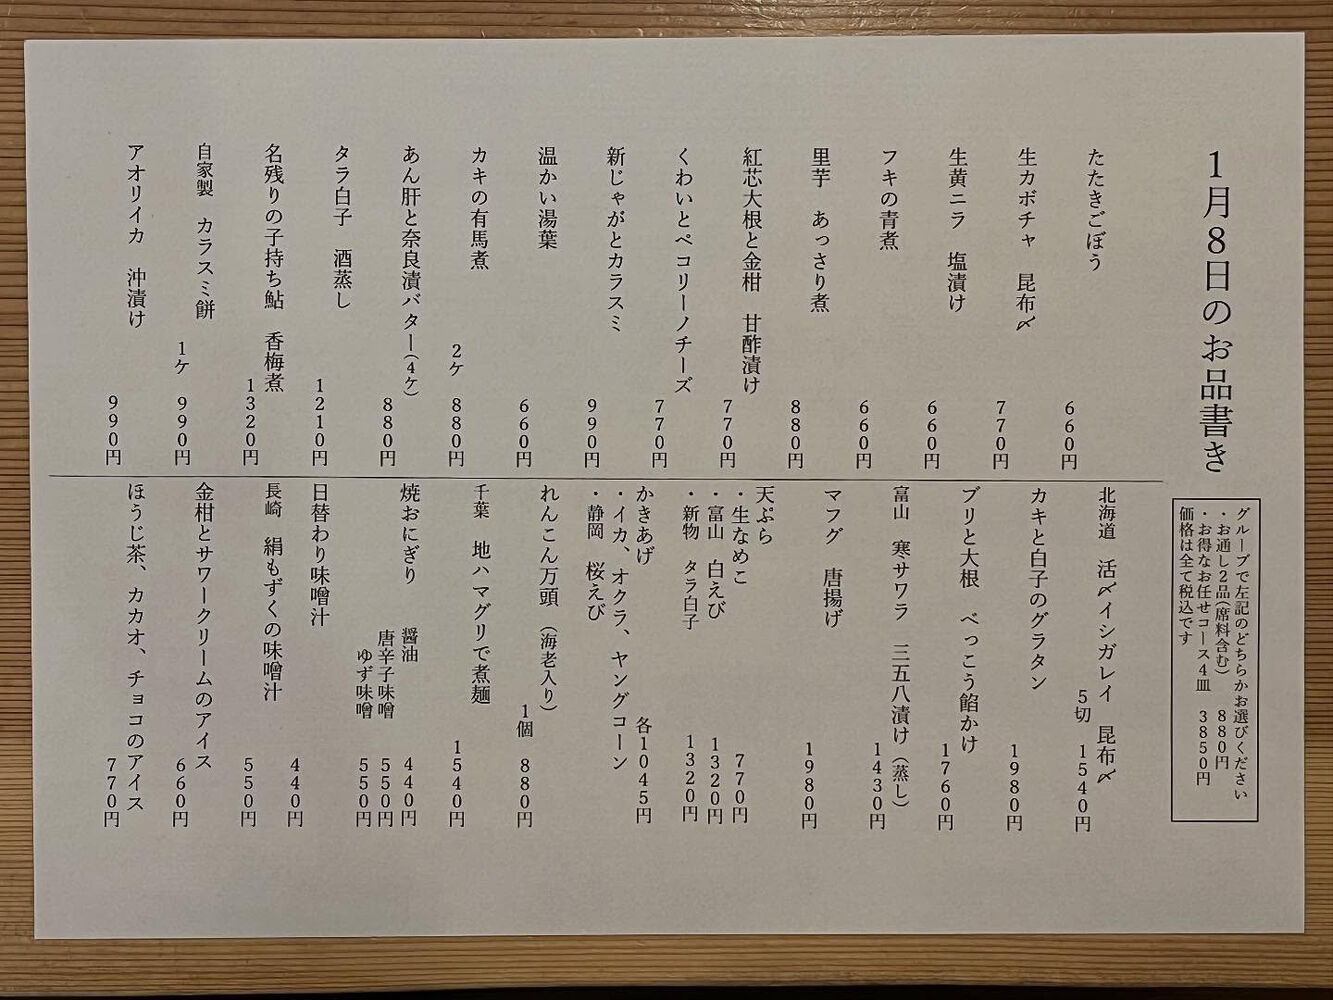 1月8日のお品書き
グループで左記のどちらかお選びください
・お通し2品(席料含む) 880円
・お得なお任せコース4皿 3850円
価格は全て税込です
たたきごぼう 660円
生カボチャ 昆布〆 770円
生黄ニラ 塩漬け 660円
フキの青煮 660円
里芋 あっさり煮 880円
紅芯大根と金柑 甘酢漬け 770円
くわいとペコリーノチーズ 770円
新じゃがとカラスミ 990円
温かい湯葉 660円
カキの有馬煮 2ケ 880円
あん肝と奈良漬バター(4ケ) 880円
タラ白子 酒蒸し 1210円
名残りの子持ち鮎 香梅煮 1320円
自家製 カラスミ餅 1ケ 990円
アオリイカ 沖漬け 990円
北海道 活〆イシガレイ 昆布〆 5切 1540円
カキと白子のグラタン 1980円
ブリと大根 べっこう餡かけ 1760円
富山 寒サワラ 三五八漬け(蒸し) 1430円
マフグ 唐揚げ 1980円
天ぷら
・生なめこ 770円
・富山 白えび 1320円
・新物 タラ白子 1320円
かきあげ 各1045円
・イカ、オクラ、ヤングコーン
・静岡 桜えび
れんこん万頭(海老入り) 1個 880円
千葉 地ハマグリで煮麺 1540円
焼おにぎり 醤油 440円
唐辛子味噌 550円
ゆず味噌 550円
日替わり味噌汁 440円
長崎 絹もずくの味噌汁 550円
金柑とサワークリームのアイス 660円
ほうじ茶、カカオ、チョコのアイス 770円